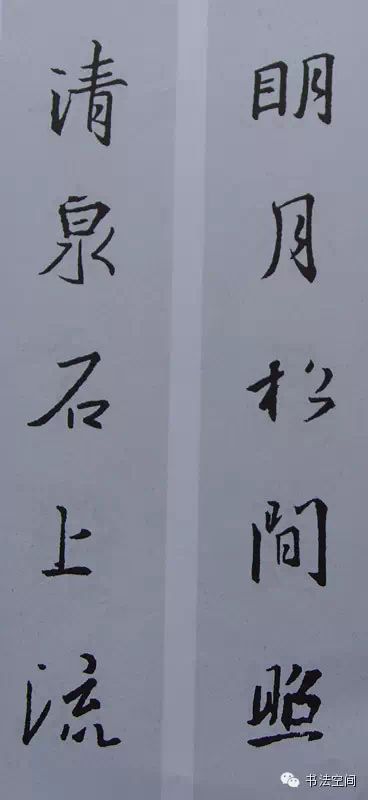 明月松間照
清泉石上流
书法空间